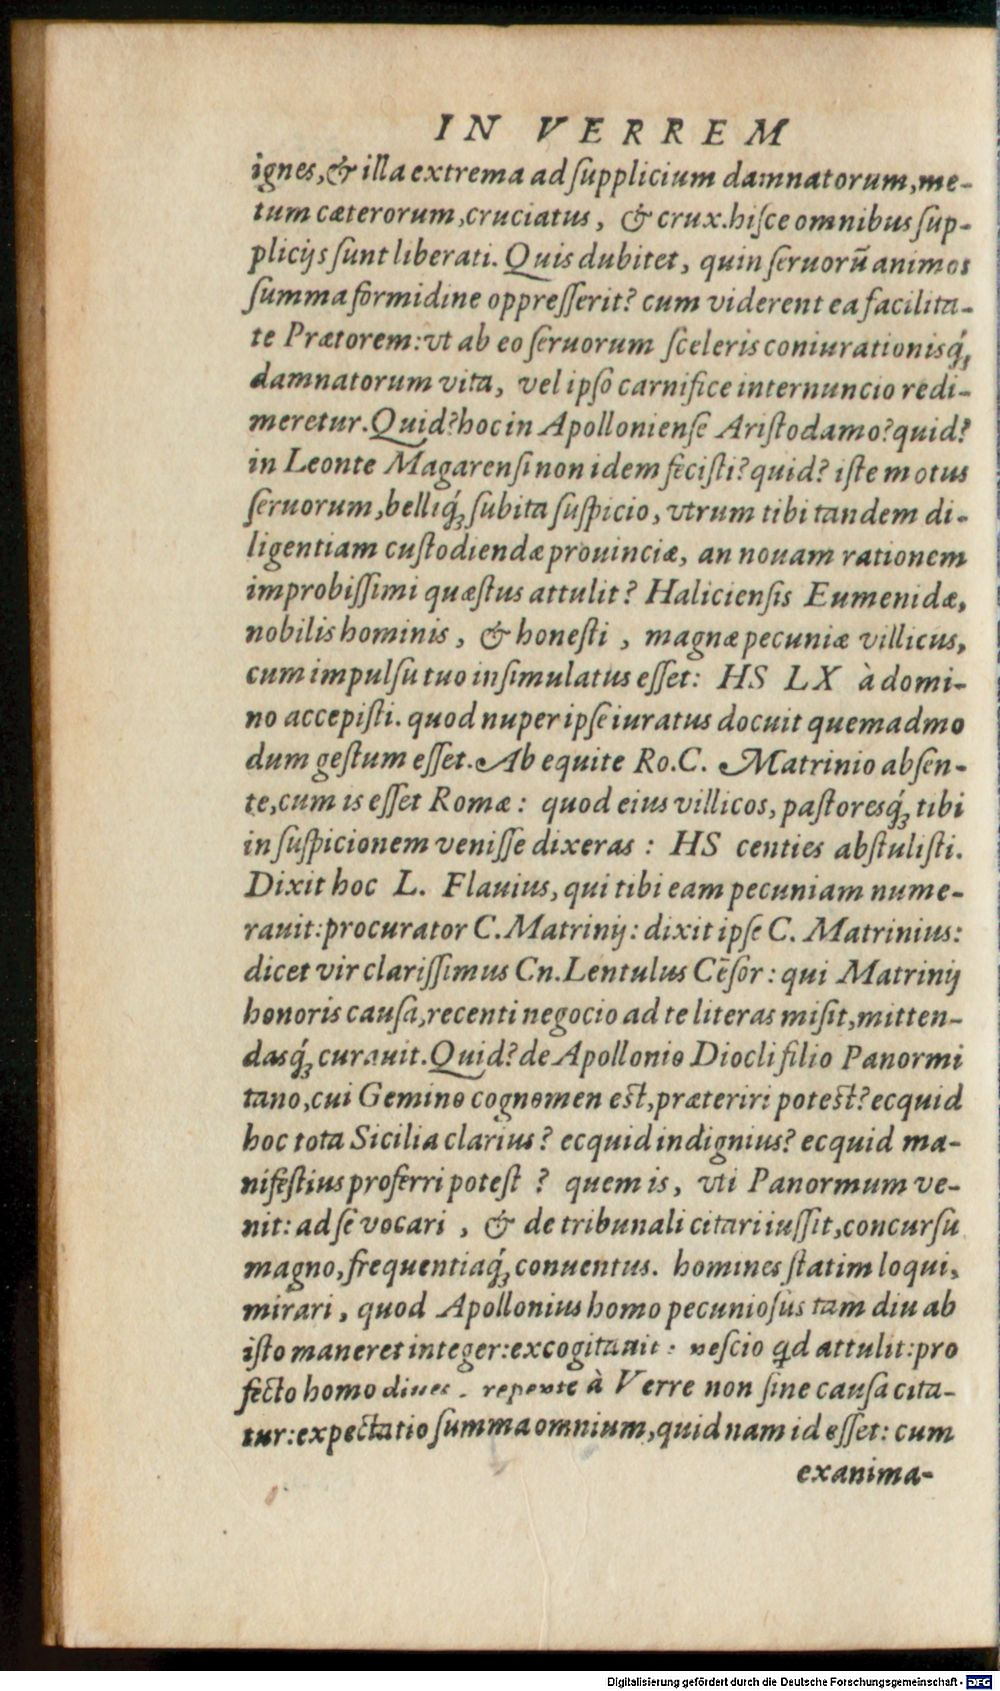 IN VERREM
ignes, & illa extrema ad ſupplicium damnatorum, me-
tum cæterorum, cruciatus, & crux. hiſce omnibus ſup-
plicijs ſunt liberati. Quis dubitet, quin ſeruorũ animos
ſumma formidine oppreſſerit? cum viderent ea facilita-
te Prætorem: vt ab eo ſeruorum ſceleris coniurationisq́;
damnatorum vita, vel ipſo carnifice internuncio redi-
meretur. Quid? hoc in Apollonienſe Ariſtodamo? quid?
in Leonte Magarenſi non idem feciſti? quid? iſte motus
ſeruorum, belliq́; ſubita ſuſpicio, vtrum tibi tandem di-
ligentiam cuſtodiendæ prouinciæ, an nouam rationem
improbiſſimi quæſtus attulit? Halicienſis Eumenidæ,
nobilis hominis, & honeſti, magnæ pecuniæ villicus,
cum impulſu tuo inſimulatus eſſet: HS LX à domi-
no accepiſti. quod nuper ipſe iuratus docuit quemadmo
dum geſtum eſſet. Ab equite Ro. C. Matrinio abſen-
te, cum is eſſet Romæ: quod eius villicos, paſtoresq́; tibi
in ſuſpicionem veniſſe dixeras: HS centies abſtuliſti.
Dixit hoc L. Flauius, qui tibi eam pecuniam nume-
rauit: procurator C. Matrinij: dixit ipſe C. Matrinius:
dicet vir clariſſimus Cn. Lentulus Cẽſor: qui Matrinij
honoris cauſa, recenti negocio ad te literas miſit, mitten-
dasq́; curauit. Quid? de Apollonio Diocli filio Panormi
tano, cui Gemino cognomen eſt, præteriri poteſt? ecquid
hoc tota Sicilia clarius? ecquid indignius? ecquid ma-
nifeſtius proferri poteſt? quem is, vti Panormum ve-
nit: ad ſe vocari, & de tribunali citari iuſſit, concurſu
magno, frequentiaq́; conuentus. homines ſtatim loqui,
mirari, quod Apollonius homo pecunioſus tam diu ab
iſto maneret integer: excogitauit: neſcio qd attulit: pro
fecto homo diues. repente à Verre non ſine cauſa cita-
tur: expectatio ſumma omnium, quid nam id eſſet: cum
exanima-
Digitalisierung gefördert durch die Deutsche Forschungsgemeinschaft - DFG